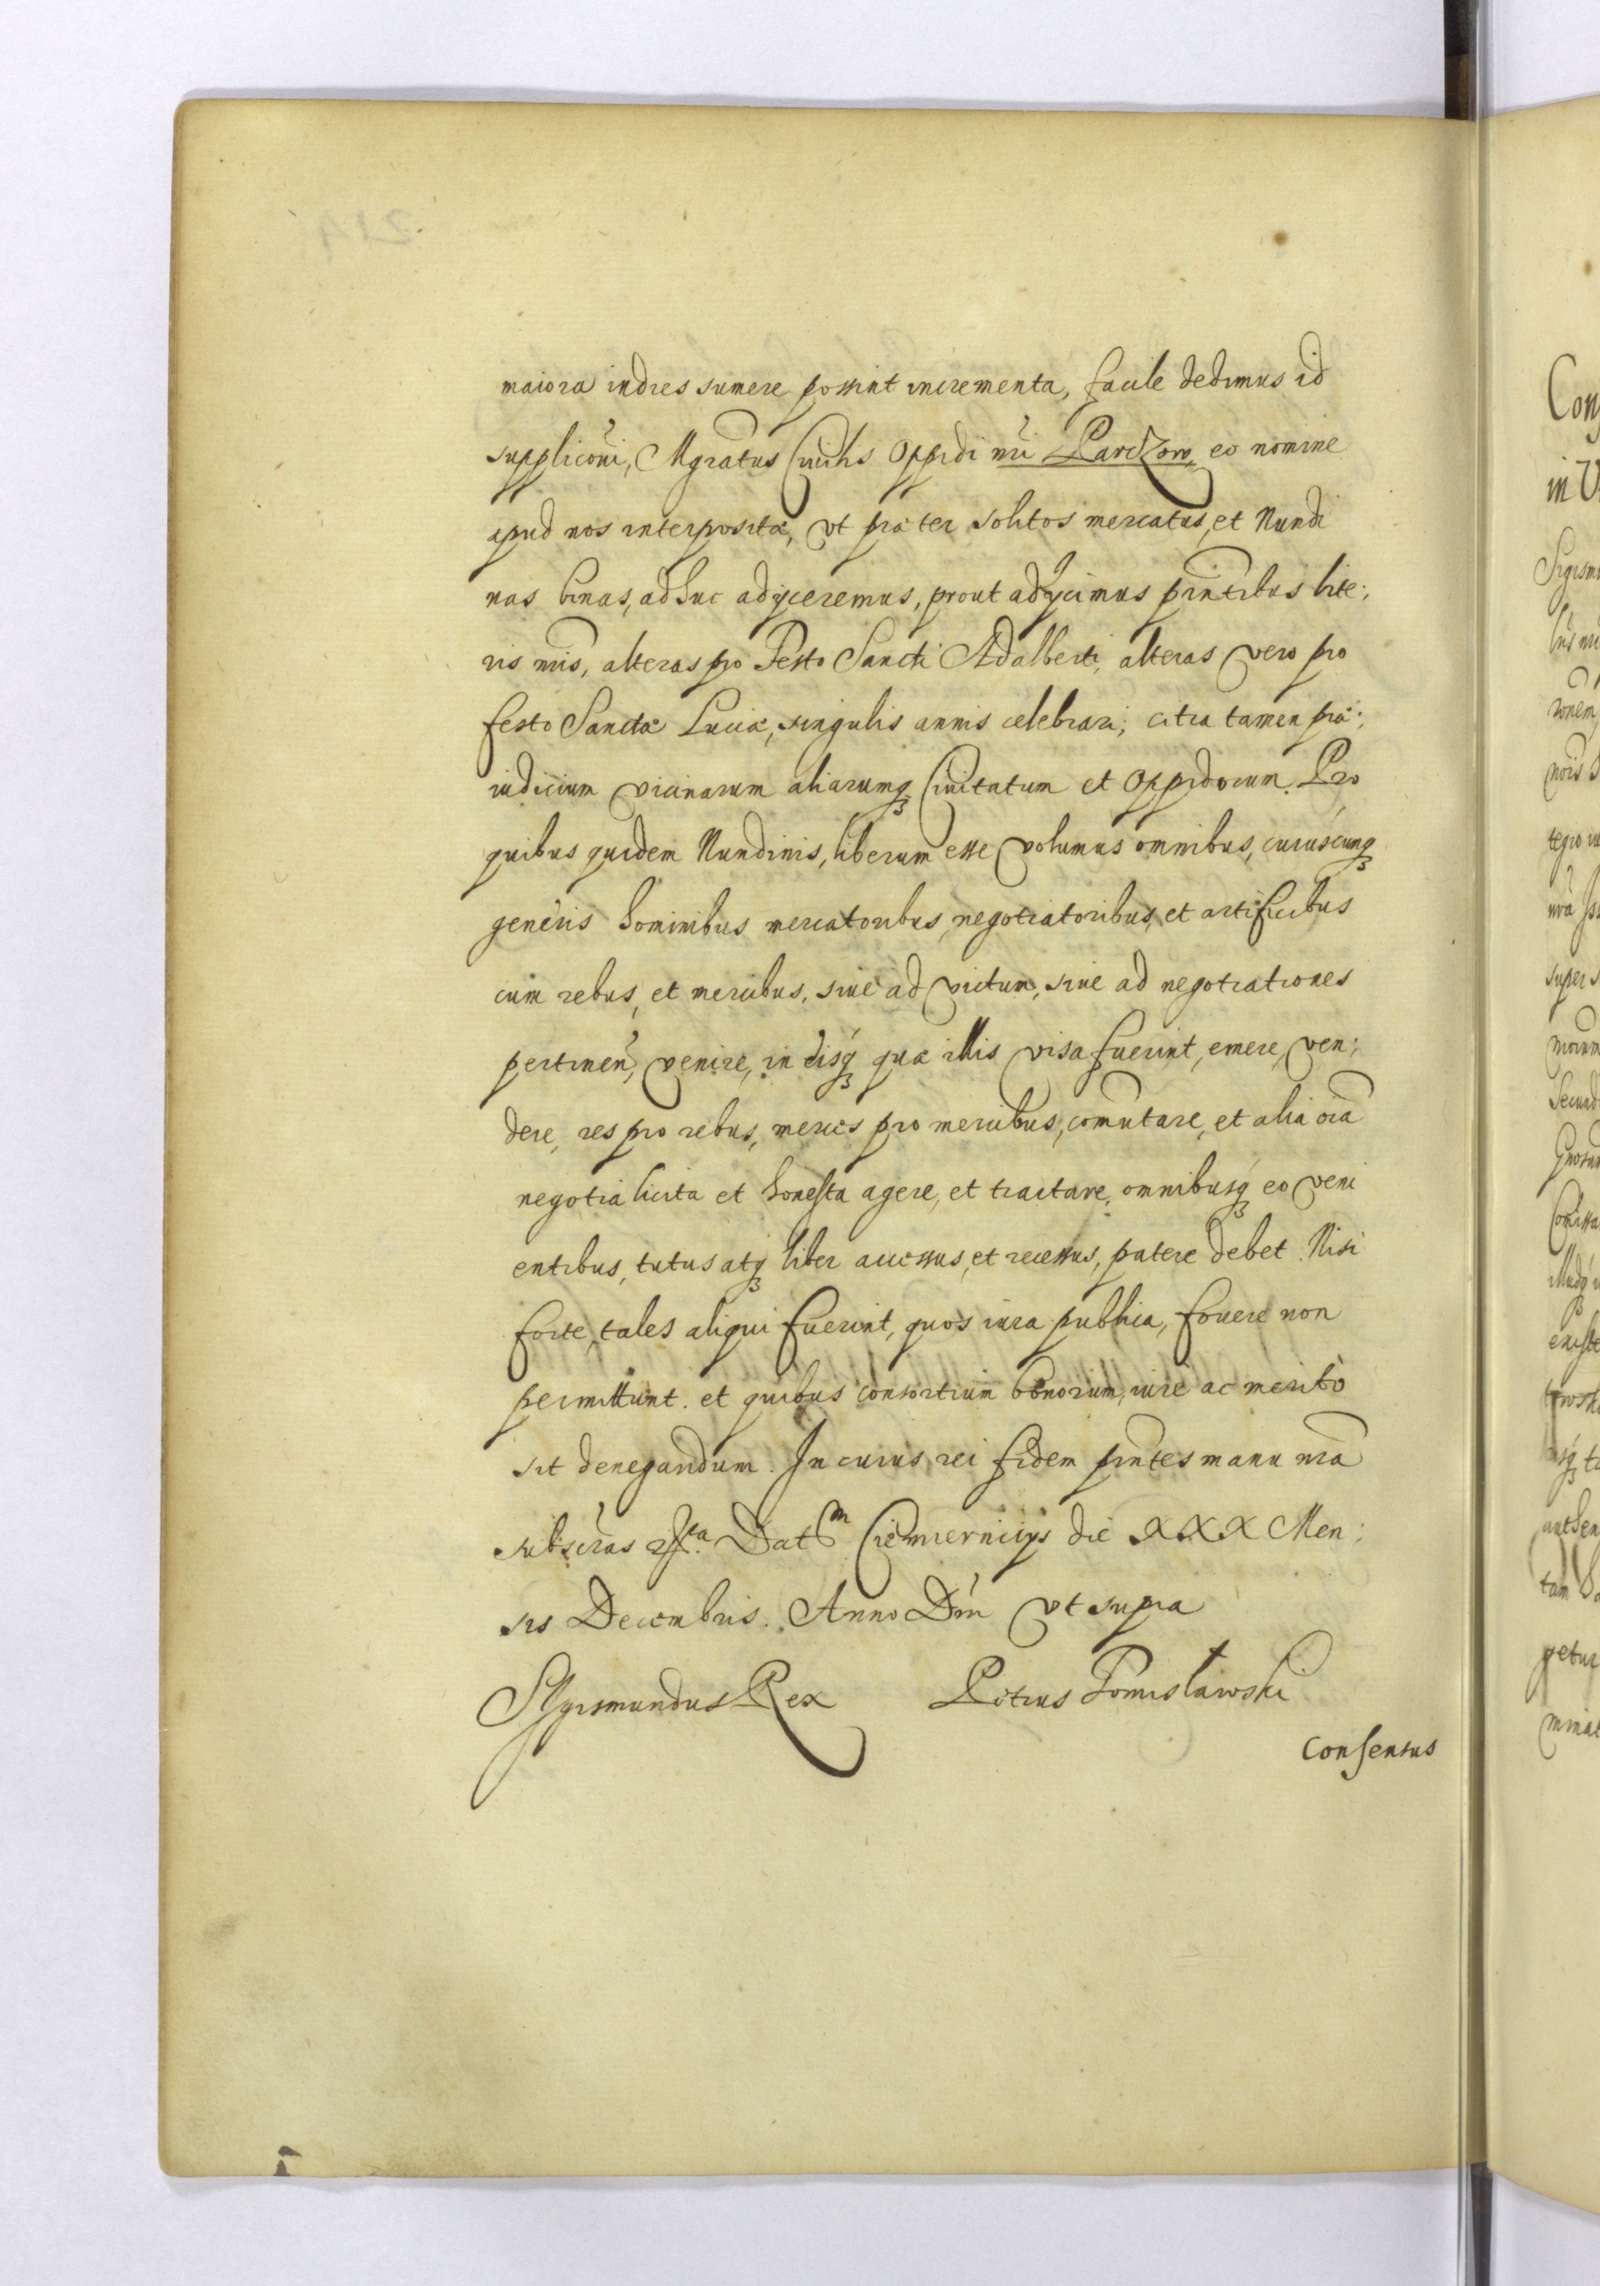 maiora indies sumere possint incrementa, facile dedimus id
supplicõni, Mgratus Ciuilis Oppidi nri Parczow, eo nomine
apud nos interpositæ, vt præter solitos mercatus, et Nundi
nas binas, adhuc adijceremus, prout adijcimus pñtibus lite:
ris nris, alteras pro Festo Sancti Adalberti, alteras vero pro
festo Sanctæ Luciæ, singulis annis celebrari; citra tamen præ:
iudicium vicinarum aliarumq Ciuitatum et Oppidorum. Pro
quibus quidem Nundinis, liberum esse volumus omnibus, cuiuscunq
generis hominibus mercatoribus, negotiatoribus, et artificibus
cum rebus, et mercibus, siue ad victum, siue ad negotiationes
pertineñ, venire, in eisq quæ illis visa fuerint, emere, ven:
dere, res pro rebus, merces pro mercibus, comutare, et alia oĩa
negotia licita et honesta agere, et tractare, omnibusq eo veni
entibus, tutus atq liber accessus, et recessus, patere debet. Nisi
forte, tales aliqui fuerint, quos iura publica, fouere non
permittunt. et quibus consortium bonorum, iure ac merito
sit denegandum. In cuius rei fidem pñtes manu nra
subscras Dat Ciemiernicijs die XXX Men:
sis Decembris. Anno Dñi vt supra
Sigismundus Rex Petrus Tomisławski
Consensus